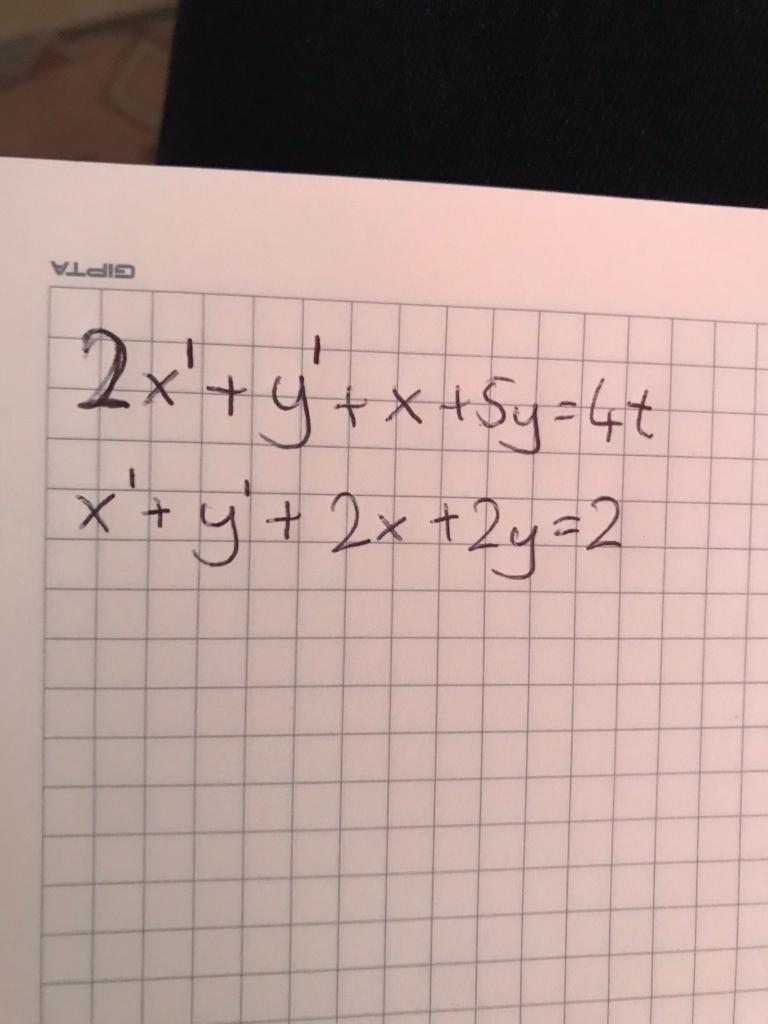 GIPTA
2x' + y' + x + 5y = 4t
x' + y' + 2x + 2y = 2